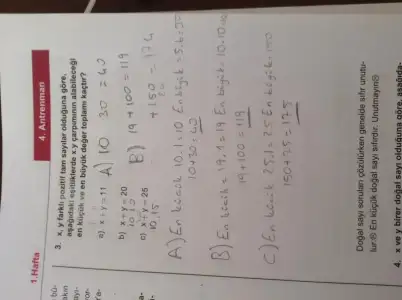 1.Hafta
4. Antrenman
3. x, y farklı pozitif tam sayılar olduğuna göre,
aşağıdaki eşitliklerde x.y çarpımının alabileceği
en küçük ve en büyük değer toplamı kaçtır?
a) x+y=11 A) 10 30 = 40
b) x+y=20
c) x+y=25
B) 19+100=119
+150 = 174
A) En küçük 10.1=10 En büyük = 5.6=30
10+30=40
B) En küçük = 19.1=19 En büyük 10.10=100
19+100=119
C) En küçük
Doğal sayı soruları çözülürken genelde sıfır unutu-
lur. En küçük doğal sayı sıfırdır. Unutmayın
4. x ve y birer doğal sayı olduğuna göre, aşağıda-